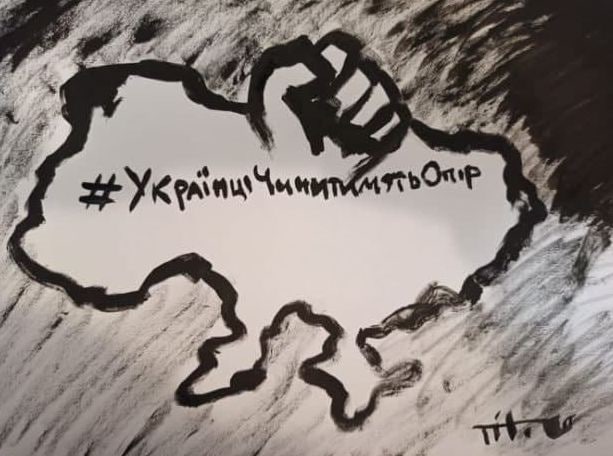 #УкраїнціЧинитимутьОпір